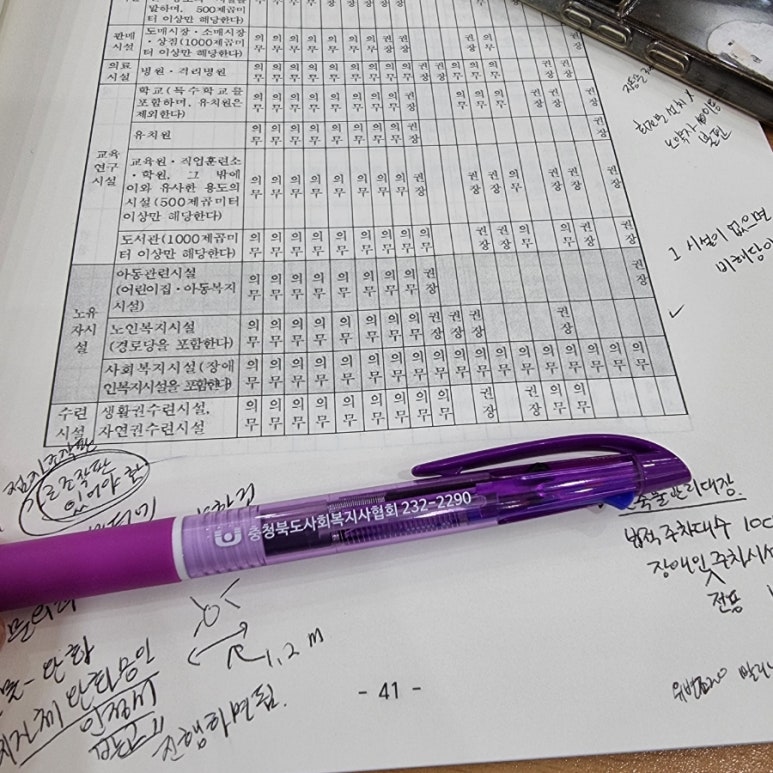 터 이상만 해당한다)
판매
시설
도매시장·소매시장
·상점(1000제곱미
터 이상만 해당한다)
의무 의무 의무 의무 의무 의무 의무 권장 권장 권장 의무
의료
시설
병원·격리병원
의무 의무 의무 의무 의무 의무 의무 의무 권장 권장 의무 의무 의무 의무 권장 권장
교육
연구
시설
학교(특수학교를
포함하며, 유치원은
제외한다)
의무 의무 의무 의무 의무 의무 의무 권장 의무 의무 의무 권장 권장 권장
유치원
의무 의무 의무 의무 의무 의무 의무 권장 권장
교육원·직업훈련소
·학원, 그 밖에
이와 유사한 용도의
시설(500제곱미터
이상만 해당한다)
의무 의무 의무 의무 의무 의무 의무 권장 권장 권장 의무 권장 권장 권장
도서관(1000제곱미
터 이상만 해당한다)
의무 의무 의무 의무 의무 의무 의무 의무 권장 권장 의무 의무 권장 권장
노유
자시
설
아동관련시설
(어린이집·아동복지
시설)
의무 의무 의무 의무 의무 의무 의무 권장 권장
노인복지시설
(경로당을 포함한다)
의무 의무 의무 의무 의무 의무 의무 권장 권장 권장 권장
사회복지시설(장애
인복지시설을 포함한다)
의무 의무 의무 의무 의무 의무 의무 의무 의무 의무 의무 의무 의무 의무 의무 의무 의무
수련
시설
생활권수련시설,
자연권수련시설
의무 의무 의무 의무 의무 의무 의무 의무 권장 권장 의무 의무
그 시설이 없으면
점자조작판
있어야 함
충청북도사회복지사협회 232-2290
법적주차대수
장애인주차시
전용
1.2 m
진행하면됨.
- 41 -